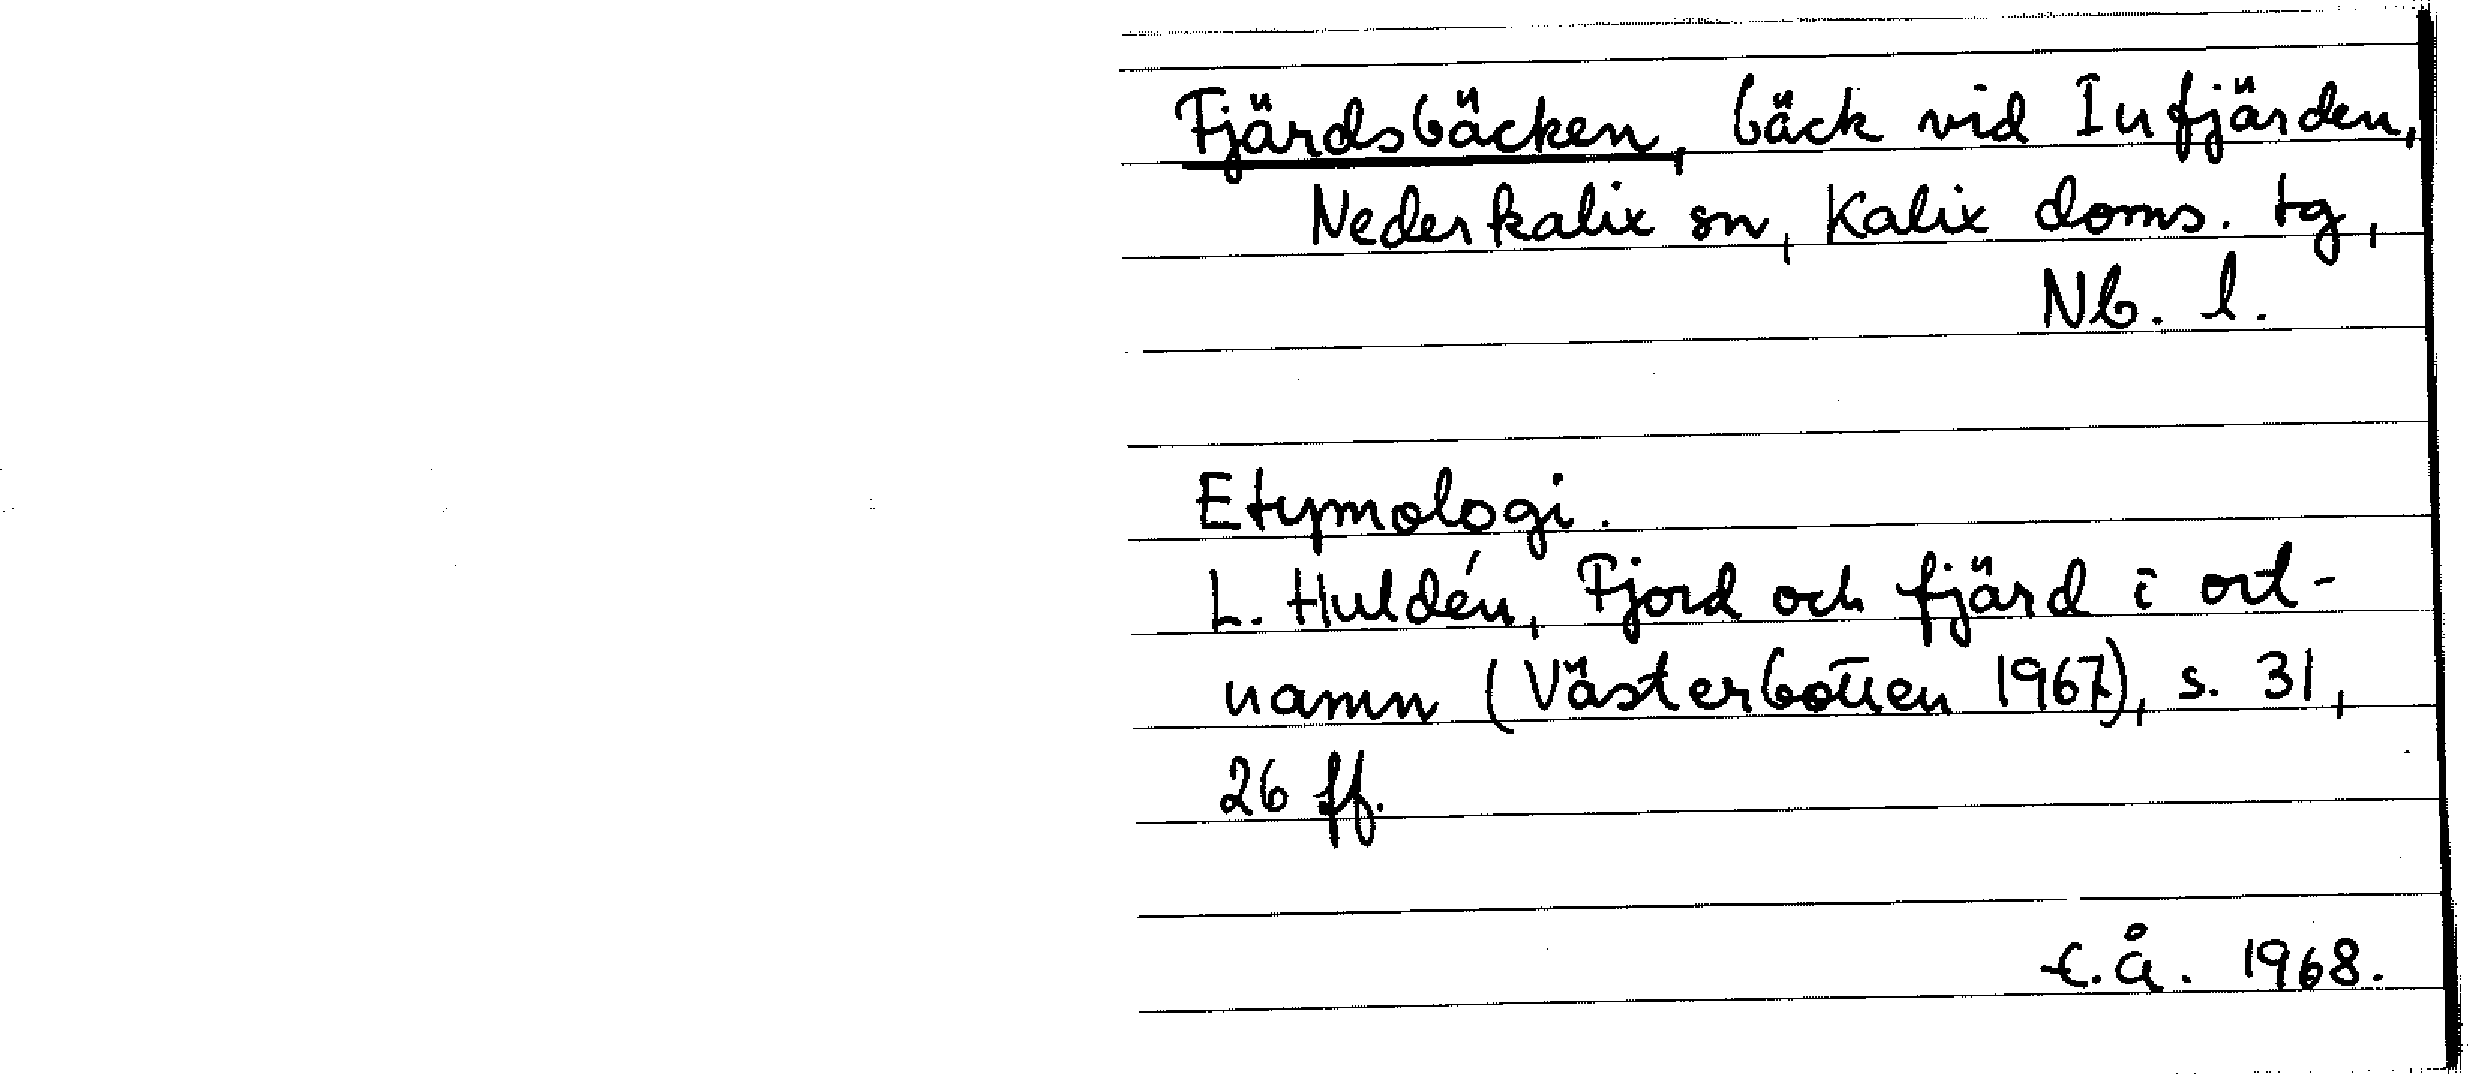 Fjärdsbäcken, bäck vid Infjärden,
Nederkalix sn, Kalix doms. tg,
Nb. l.
Etymologi.
L. Huldén, Fjord och fjärd i ort-
namn (Västerbotten 1967), s. 31,
26 ff.
E.Å. 1968.